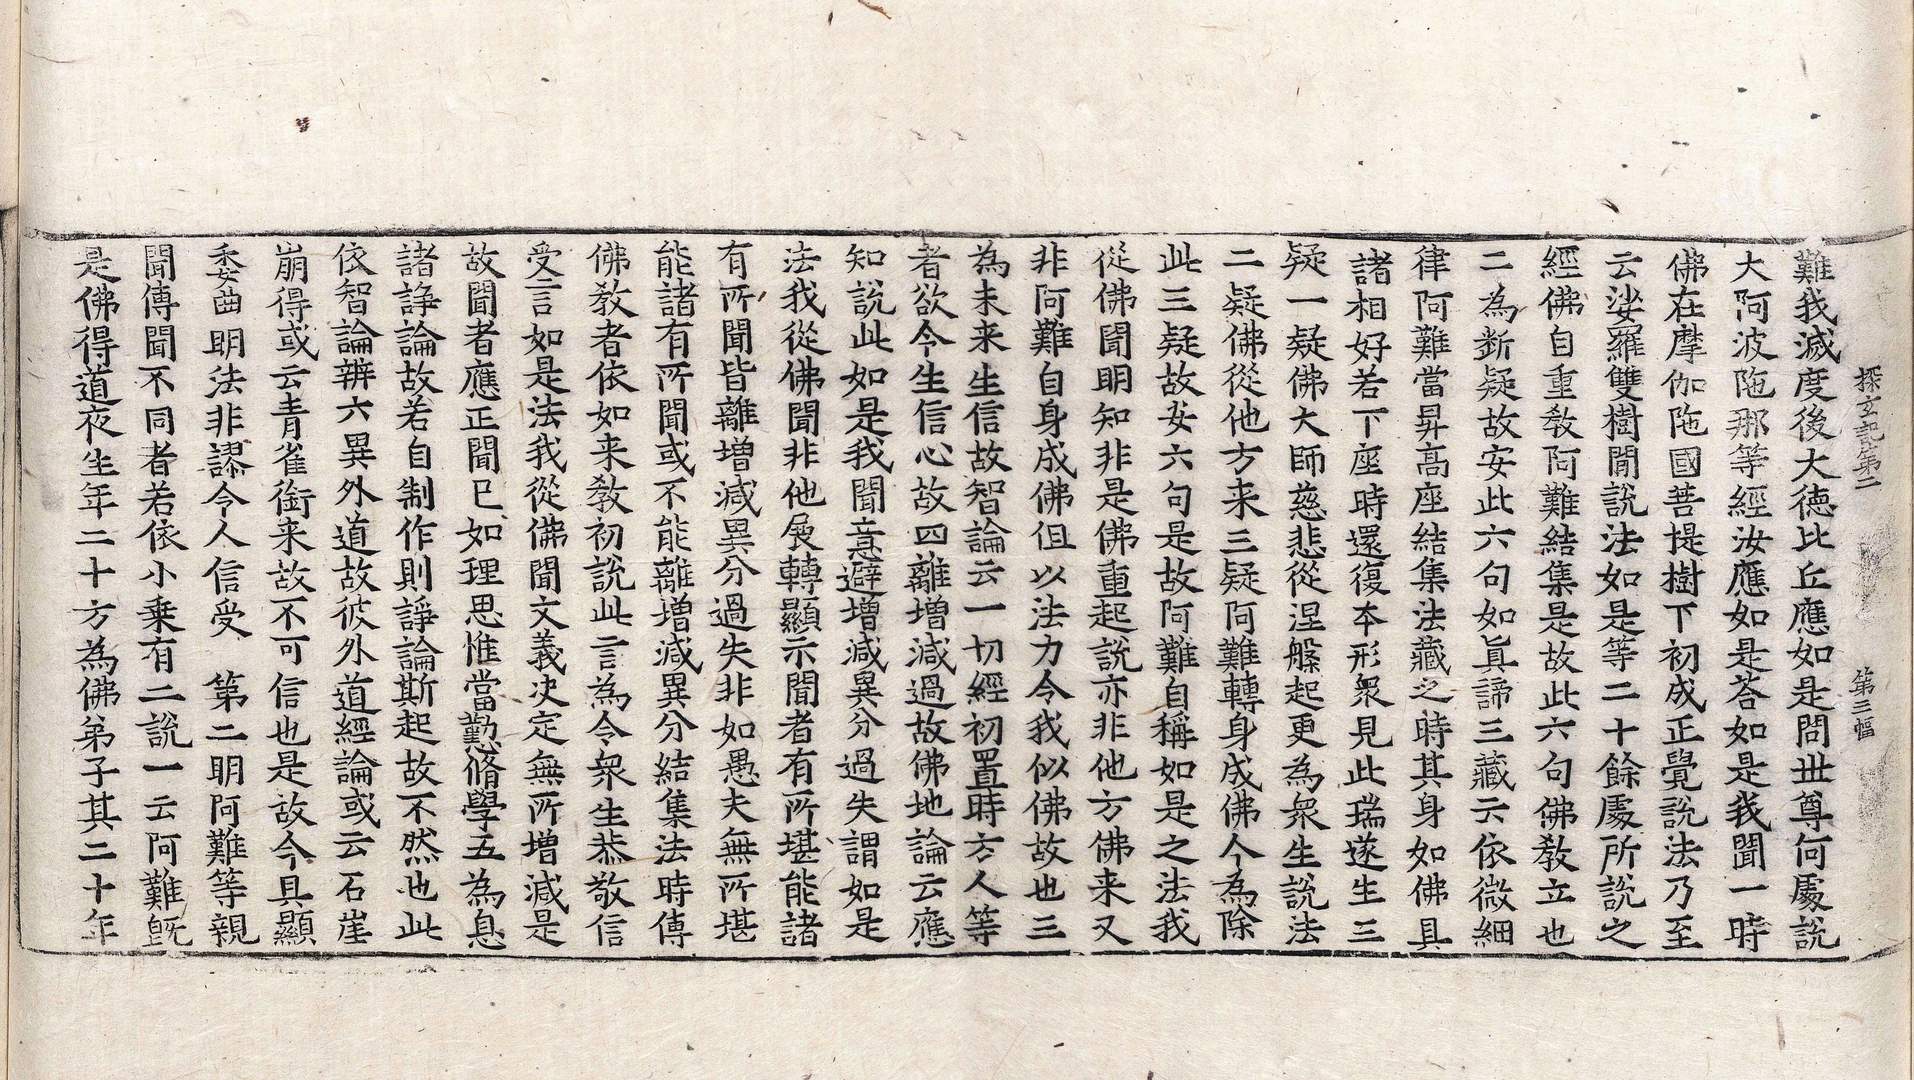 探玄記第二 第三幅
難我滅度後大德比丘應如是問世尊何處說
大阿波陁那等經汝應如是荅如是我聞一時
佛在摩伽陁國菩提樹下初成正覺說法乃至
云娑羅雙樹間說法如是等二十餘處所說之
經佛自重教阿難結集是故此六句佛教立也
二為斷疑故安此六句如真諦三藏云依微細
律阿難當昇高座結集法藏之時其身如佛具
諸相好若下座時還復本形眾見此瑞遂生三
疑一疑佛大師慈悲從涅槃起更為眾生說法
二疑佛從他方来三疑阿難轉身成佛今為除
此三疑故安六句是故阿難自稱如是之法我
從佛聞明知非是佛重起說亦非他方佛来又
非阿難自身成佛但以法力令我似佛故也三
為未来生信故智論云一切經初置時方人等
者欲令生信心故四離增減過故佛地論云應
知說此如是我聞意避增減異分過失謂如是
法我從佛聞非他展轉顯示聞者有所堪能諸
有所聞皆離增減異分過失非如愚夫無所堪
能諸有所聞或不能離增減異分結集法時傳
佛教者依如来教初說此言為令眾生恭敬信
受言如是法我從佛聞文義决定無所增減是
故聞者應正聞已如理思惟當勤脩學五為息
諸諍論故若自制作則諍論斯起故不然也此
依智論辨六異外道故彼外道經論或云石崖
崩得或云青雀銜来故不可信也是故今具顯
委曲明法非謬令人信受 第二明阿難等親
聞傳聞不同者若依小乗有二說一云阿難既
是佛得道夜生年二十方為佛弟子其二十年